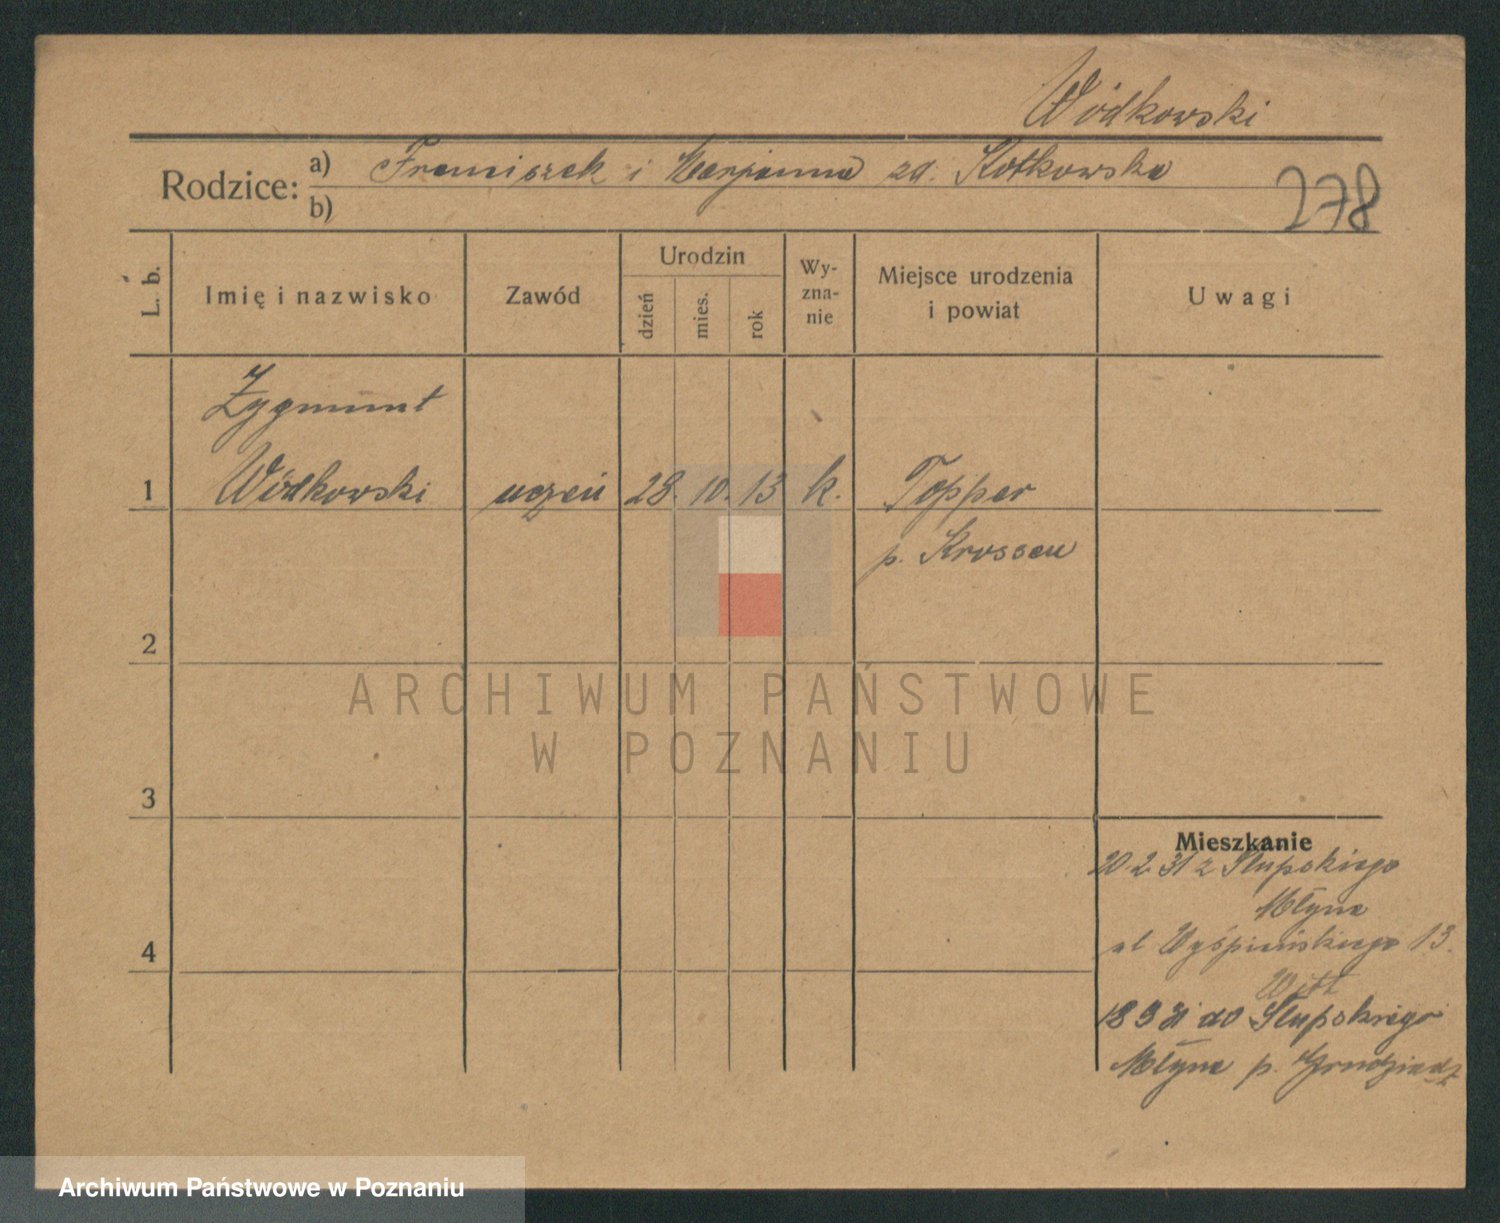 Wódkowski
Rodzice: a) Franciszek i Marjanna zd. Kotkowska
b)
278
L. b.
Imię i nazwisko
Zawód
Urodzin
dzień
mies.
rok
Wy-
zna-
nie
Miejsce urodzenia
i powiat
Uwagi
Zygmunt
1 Wódkowski uczeń 28. 10. 13 k. Topper
p. Krossen
2
ARCHIWUM PAŃSTWOWE
W POZNANIU
3
Mieszkanie
20 2 31 z Słupskiego
Młyna
ul Wyśpiańskiego 13.
4
18 3 31 do Słupskiego
Młyna p. Grudziądz
Archiwum Państwowe w Poznaniu